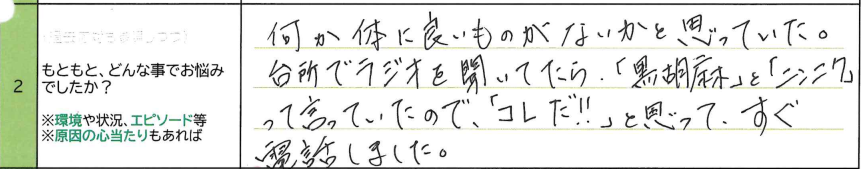 2
もともと、どんな事でお悩み
でしたか？
※環境や状況、エピソード等
※原因の心当たりもあれば
何か体に良いものがないかと思っていた。
台所でラジオを聞いてたら、「黒胡麻」と「ニンニク」
って言っていたので、「コレだ!!」と思って、すぐ
電話しました。